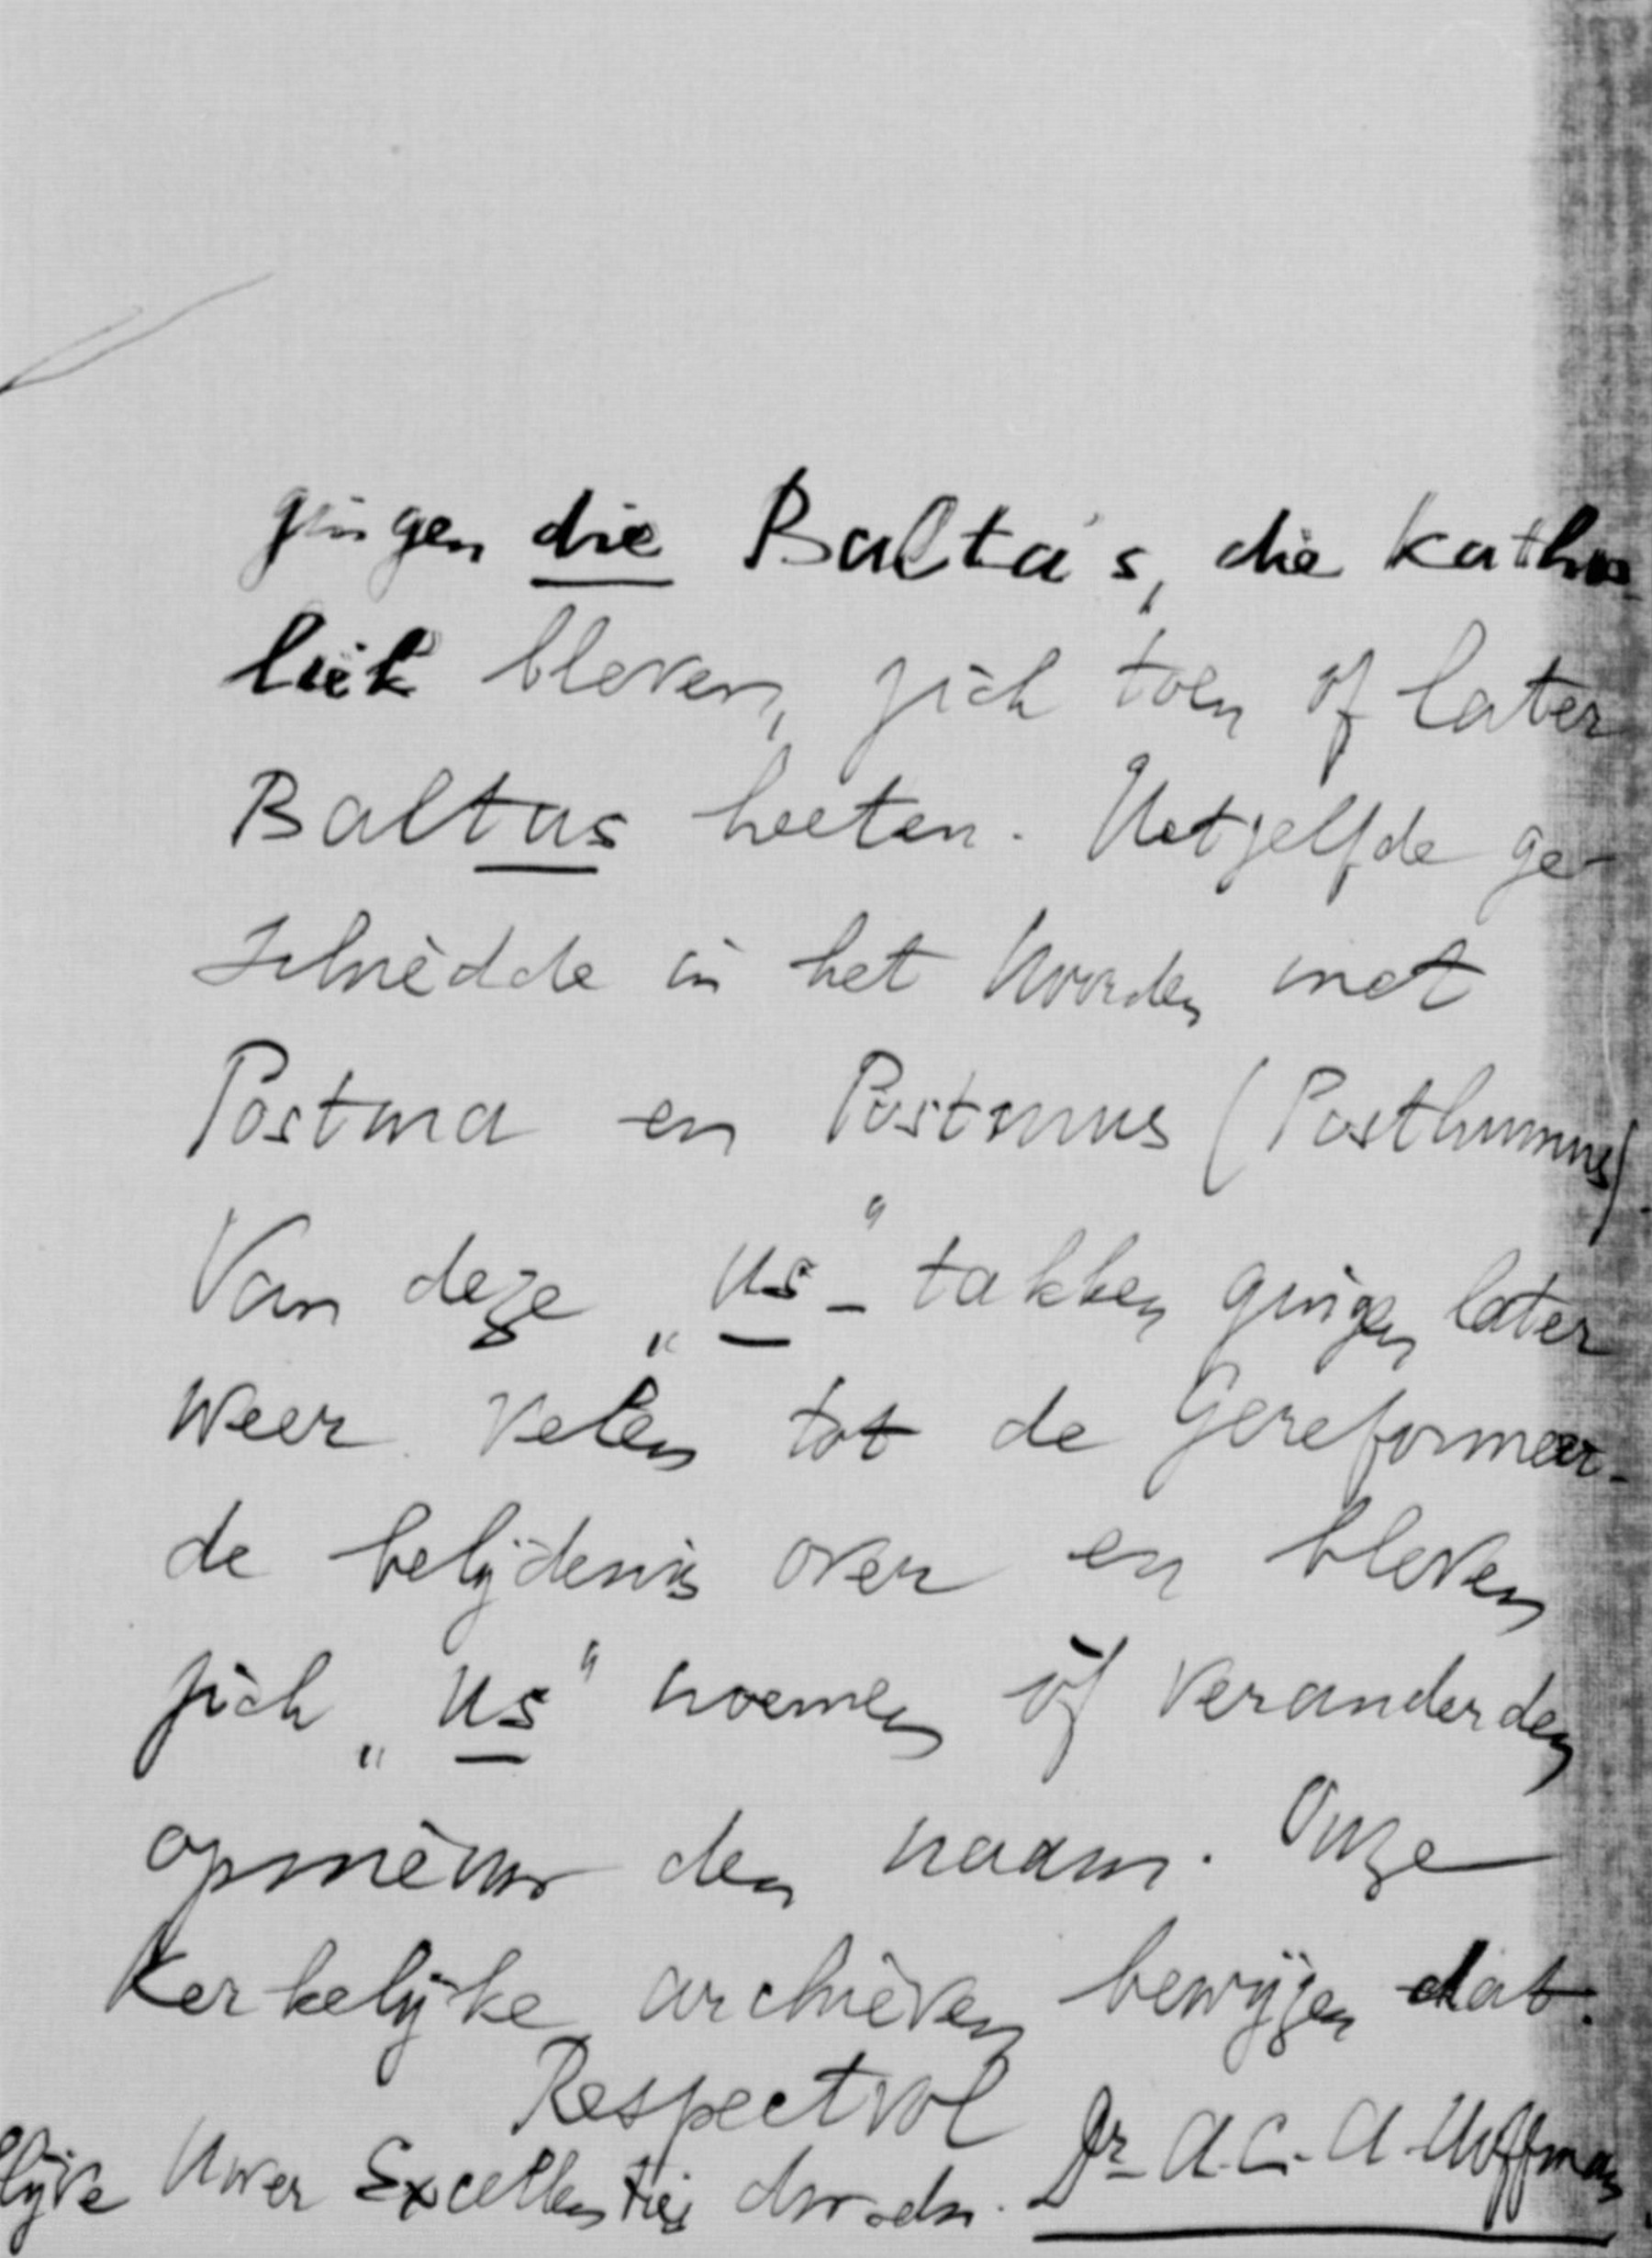 gingen die Balta's, die katho
liek bleven, zich toen of later
Baltus heeten. Hetzelfde ge-
schiedde in het Noorden met
Postma en Postmus (Posthumus).
Van deze „us"- takken gingen later
weer velen tot de Gereformeer-
de belijdenis over en bleven
zich „us" noemen òf veranderden
opnieuw den naam. Onze
Kerkelijke archieven bewijzen dat.
Respectvol
Uwer Excellentie's Dr. A.C.A. Hoffman